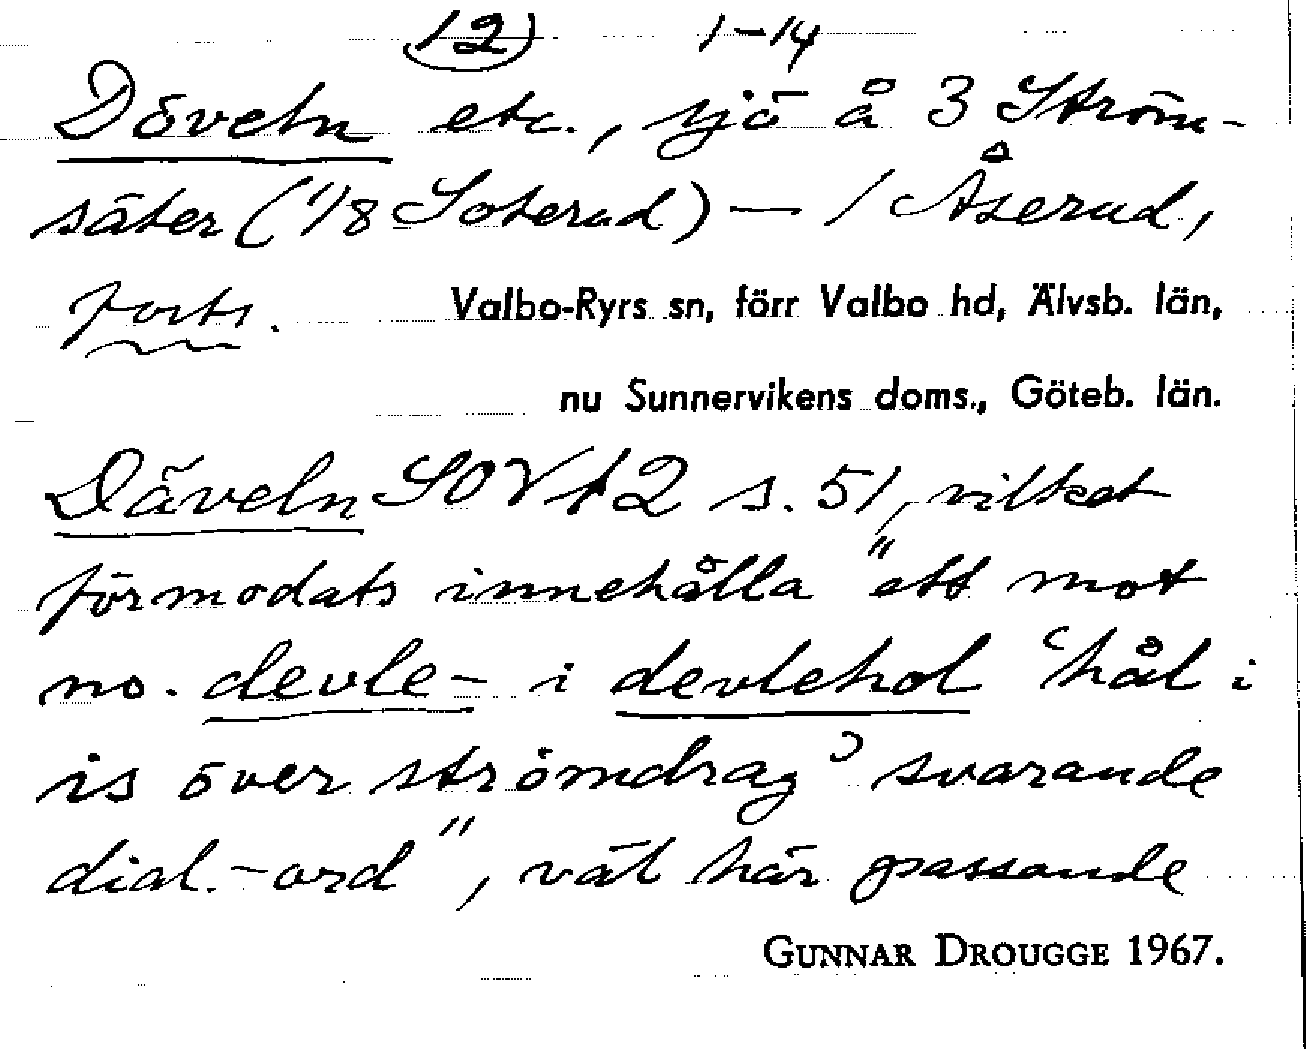 12) 1-14
Döveln etc., sjö å 3 Ström-
säter (1/8 Soterud) — 1 Åserud,
forts. Valbo-Ryrs sn, förr Valbo hd, Älvsb. län,
nu Sunnervikens doms., Göteb. län.
Däveln SOV 12 s. 51, vilket
förmodats innehålla "ett mot
no. devle- i devlehol 'hål i
is över strömdrag' svarande
dial.-ord", väl här passande
GUNNAR DROUGGE 1967.